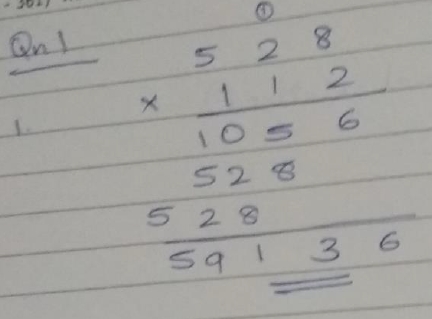 Qn 1
①
5 2 8
× 1 1 2
1. 1 0 5 6
5 2 8
5 2 8
5 9 1 3 6